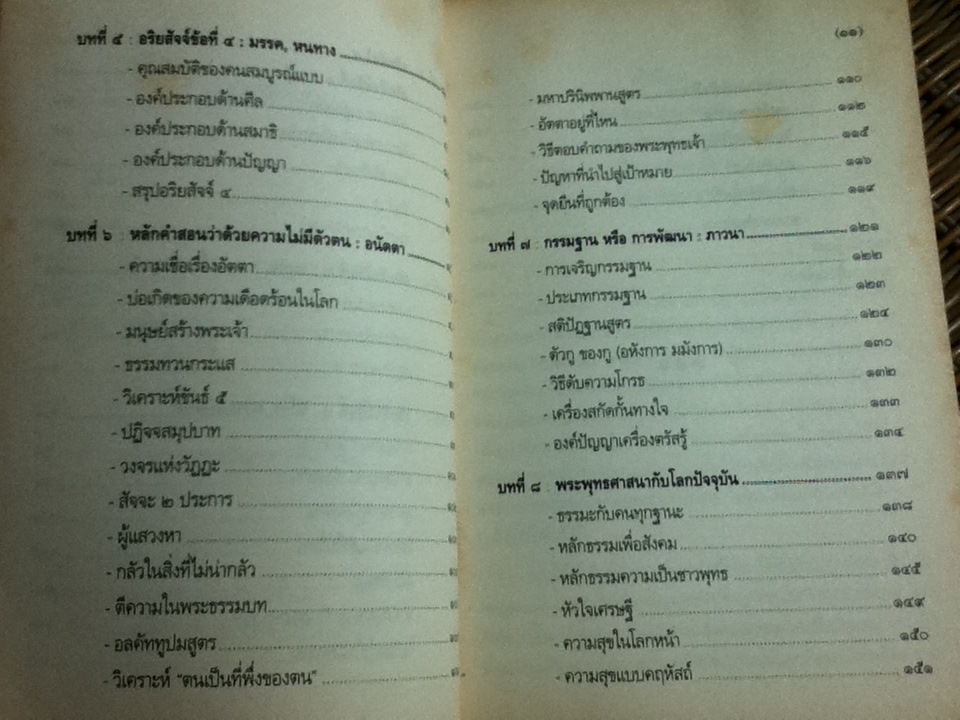 บทที่ ๕ : อริยสัจจ์ข้อที่ ๔ : มรรค, หนทาง
- คุณสมบัติของคนสมบูรณ์แบบ
- องค์ประกอบด้านศีล
- องค์ประกอบด้านสมาธิ
- องค์ประกอบด้านปัญญา
- สรุปอริยสัจจ์ ๔
บทที่ ๖ : หลักคำสอนว่าด้วยความไม่มีตัวตน : อนัตตา
- ความเชื่อเรื่องอัตตา
- บ่อเกิดของความเดือดร้อนในโลก
- มนุษย์สร้างพระเจ้า
- ธรรมทวนกระแส
- วิเคราะห์ขันธ์ ๕
- ปฏิจจสมุปบาท
- วงจรแห่งวัฏฏะ
- สัจจะ ๒ ประการ
- ผู้แสวงหา
- กลัวในสิ่งที่ไม่น่ากลัว
- ตีความในพระธรรมบท
- อลคัททูปมสูตร
- วิเคราะห์ "ตนเป็นที่พึ่งของตน"
(๑๑)
- มหาปรินิพพานสูตร ๑๑๐
- อัตตาอยู่ที่ไหน ๑๑๒
- วิธีตอบคำถามของพระพุทธเจ้า ๑๑๕
- ปัญหาที่นำไปสู่เป้าหมาย ๑๑๖
- จุดยืนที่ถูกต้อง ๑๑๙
บทที่ ๗ : กรรมฐาน หรือ การพัฒนา : ภาวนา ๑๒๑
- การเจริญกรรมฐาน ๑๒๒
- ประเภทกรรมฐาน ๑๒๓
- สติปัฏฐานสูตร ๑๒๔
- ตัวกู ของกู (อหังการ มมังการ) ๑๓๐
- วิธีดับความโกรธ ๑๓๒
- เครื่องสกัดกั้นทางใจ ๑๓๓
- องค์ปัญญาเครื่องตรัสรู้ ๑๓๔
บทที่ ๘ : พระพุทธศาสนากับโลกปัจจุบัน ๑๓๗
- ธรรมะกับคนทุกฐานะ ๑๓๘
- หลักธรรมเพื่อสังคม ๑๔๐
- หลักธรรมความเป็นชาวพุทธ ๑๔๕
- หัวใจเศรษฐี ๑๔๙
- ความสุขในโลกหน้า ๑๕๐
- ความสุขแบบคฤหัสถ์ ๑๕๑